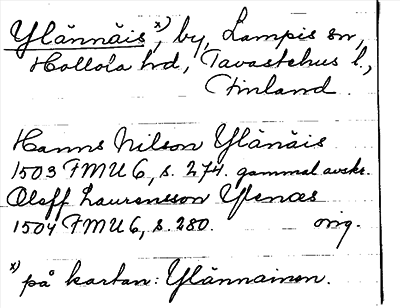 Ylännäis x), by, Lampis sn,
Hollola hd, Tavastehus l.,
Finland.
Hanns Nilson Ylänäis
1503 FMU 6, s. 274. gammal avskr.
Oleff Laurensson Ylenæs
1504 FMU 6, s. 280. orig.
x) på kartan: Ylännainen.